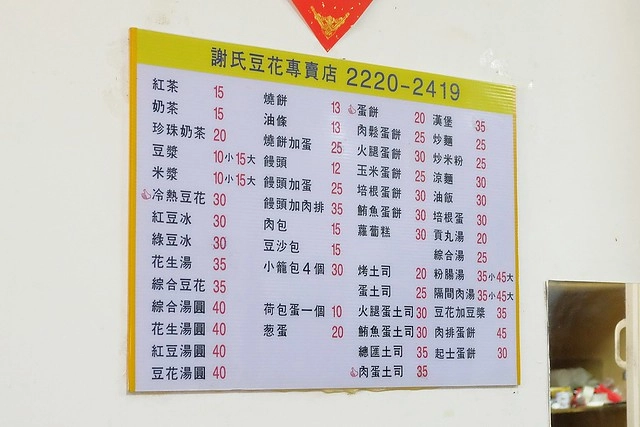 謝氏豆花專賣店 2220-2419
紅茶 15
奶茶 15
珍珠奶茶 20
豆漿 10小15大
米漿 10小15大
冷熱豆花 30
紅豆冰 30
綠豆冰 30
花生湯 35
綜合豆花 35
綜合湯圓 40
花生湯圓 40
紅豆湯圓 40
豆花湯圓 40
燒餅 13
油條 13
燒餅加蛋 25
饅頭 12
饅頭加蛋 25
饅頭加肉排 35
肉包 15
豆沙包 15
小籠包4個 30
荷包蛋一個 10
葱蛋 20
蛋餅 20
肉鬆蛋餅 25
火腿蛋餅 30
玉米蛋餅 25
培根蛋餅 30
鮪魚蛋餅 30
蘿蔔糕 30
烤土司 20
蛋土司 25
火腿蛋土司 30
鮪魚蛋土司 30
總匯土司 35
肉蛋土司 35
漢堡 35
炒麵 25
炒米粉 25
涼麵 30
油飯 30
培根蛋 30
貢丸湯 20
綜合湯 25
粉腸湯 35小45大
隔間肉湯 35小45大
豆花加豆漿 35
肉排蛋餅 45
起士蛋餅 30